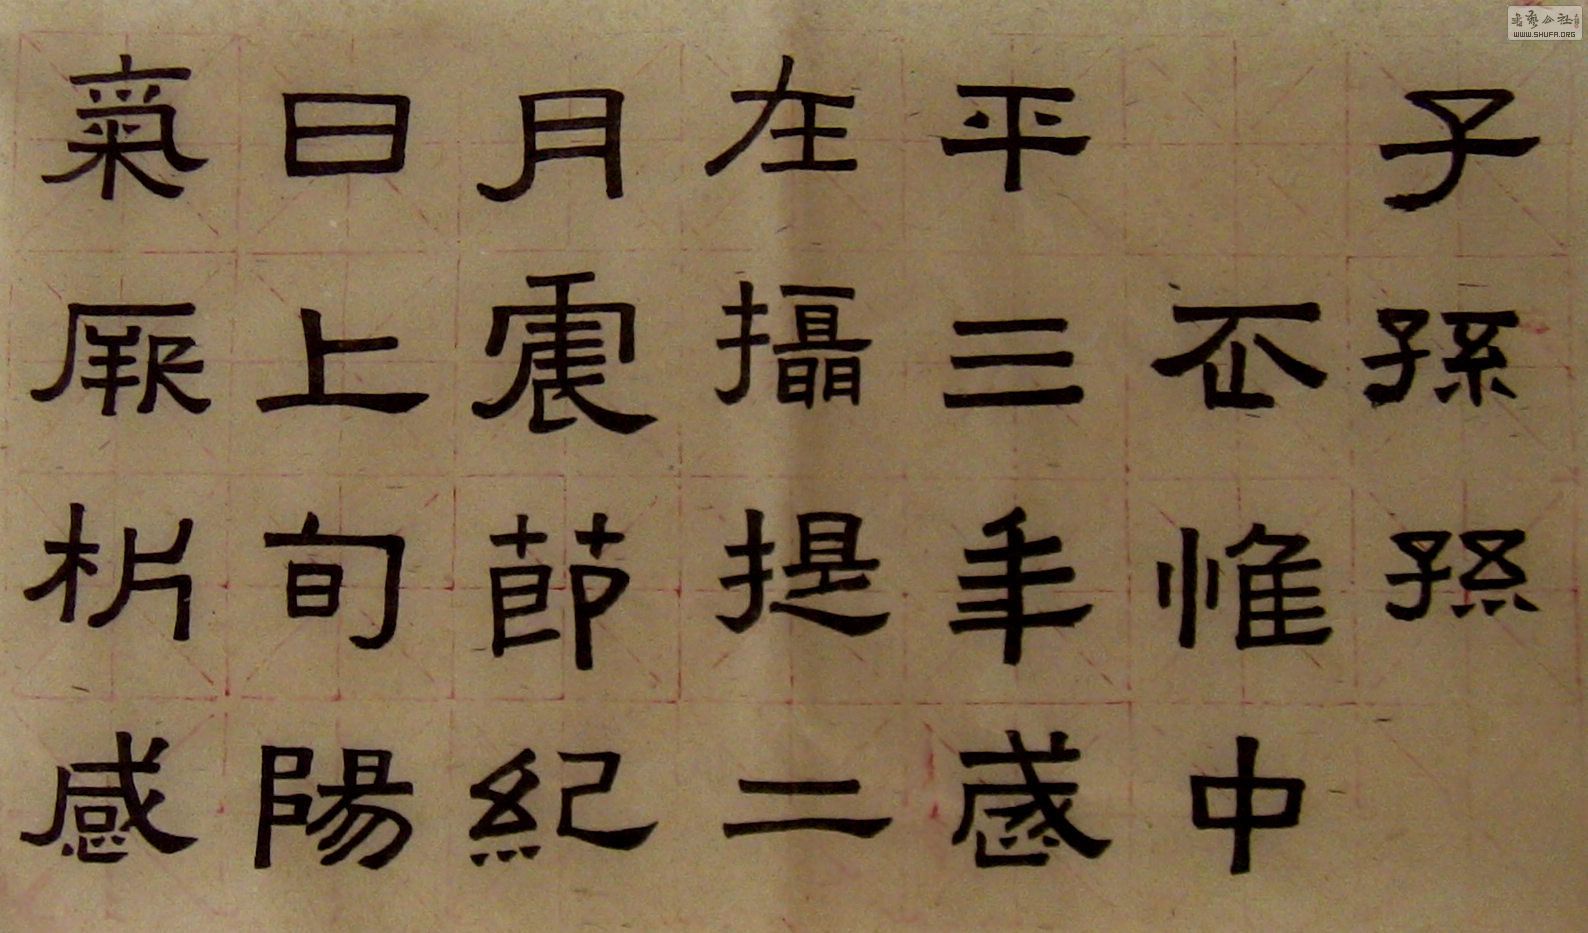 子孫孫
丕惟中
平三年歲
在攝提二
月震節紀
日上旬陽
氣厥析感
書藝公社
WWW.SHUFA.ORG